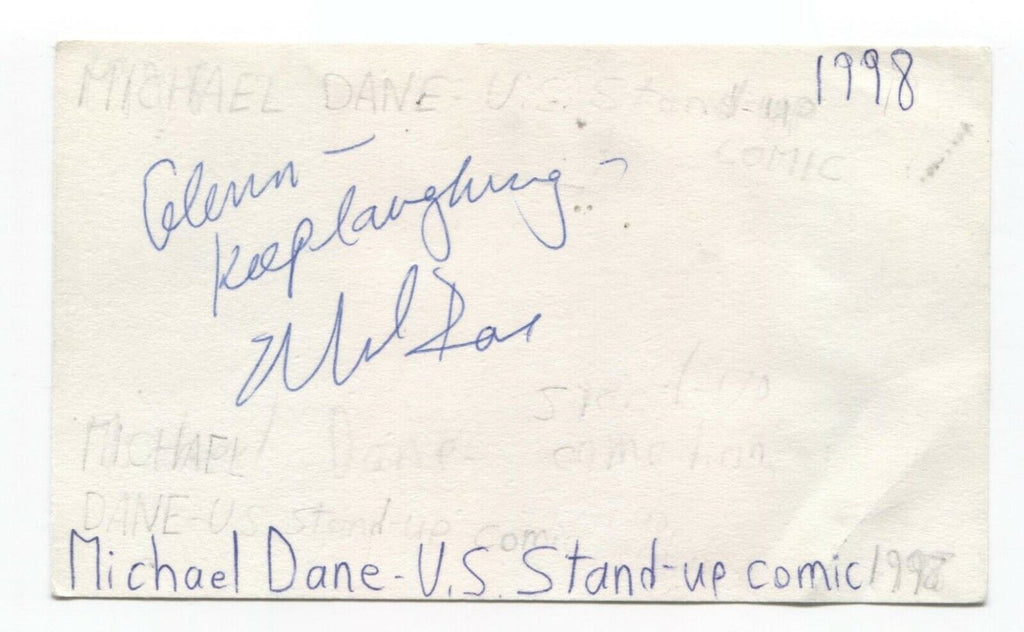 MICHAEL DANE - U.S. Stand-up
1998
COMIC
Glenn -
Keep laughing -
Michael Dane
stand-up
MICHAEL Dane comedian
DANE-US stand-up comic
Michael Dane-U.S. Stand-up comic 1998